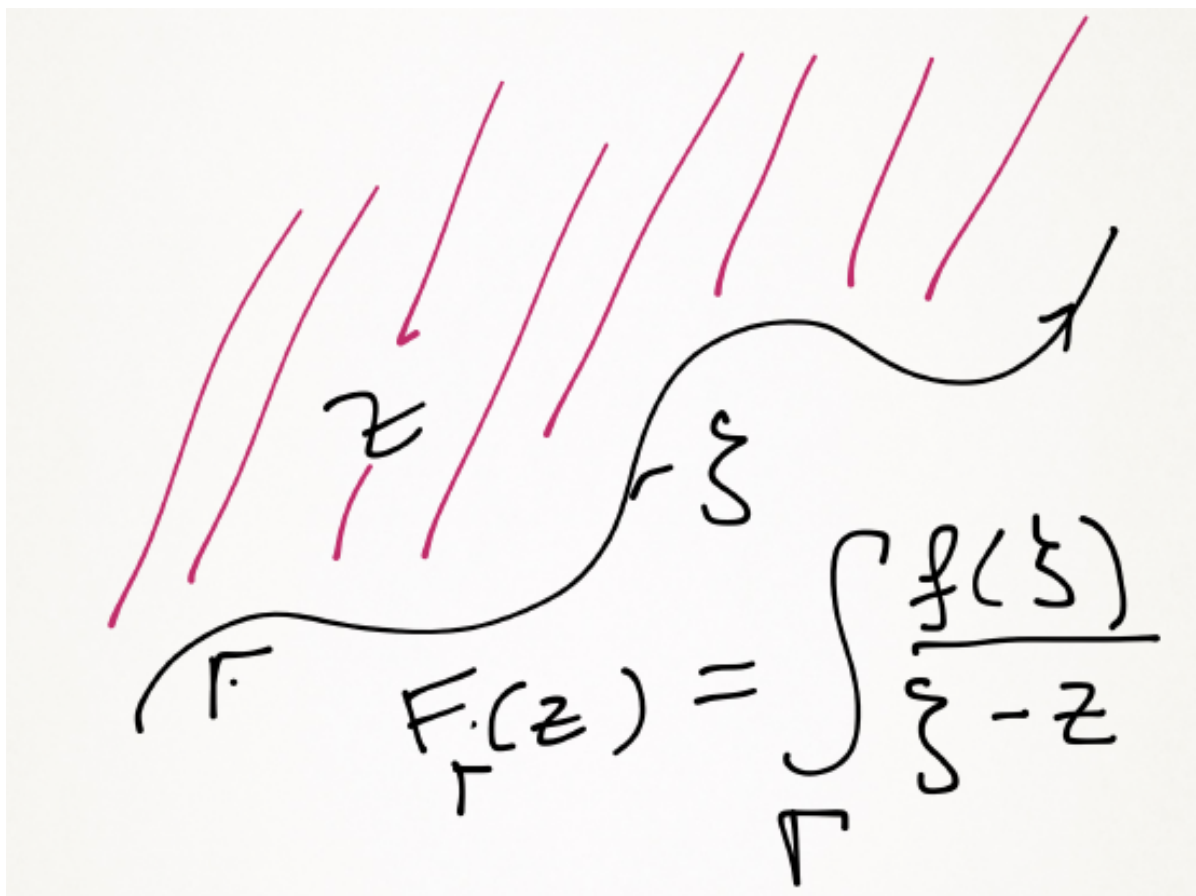 z
ξ
Γ
F_Γ(z) = ∫_Γ f(ξ)/(ξ - z)